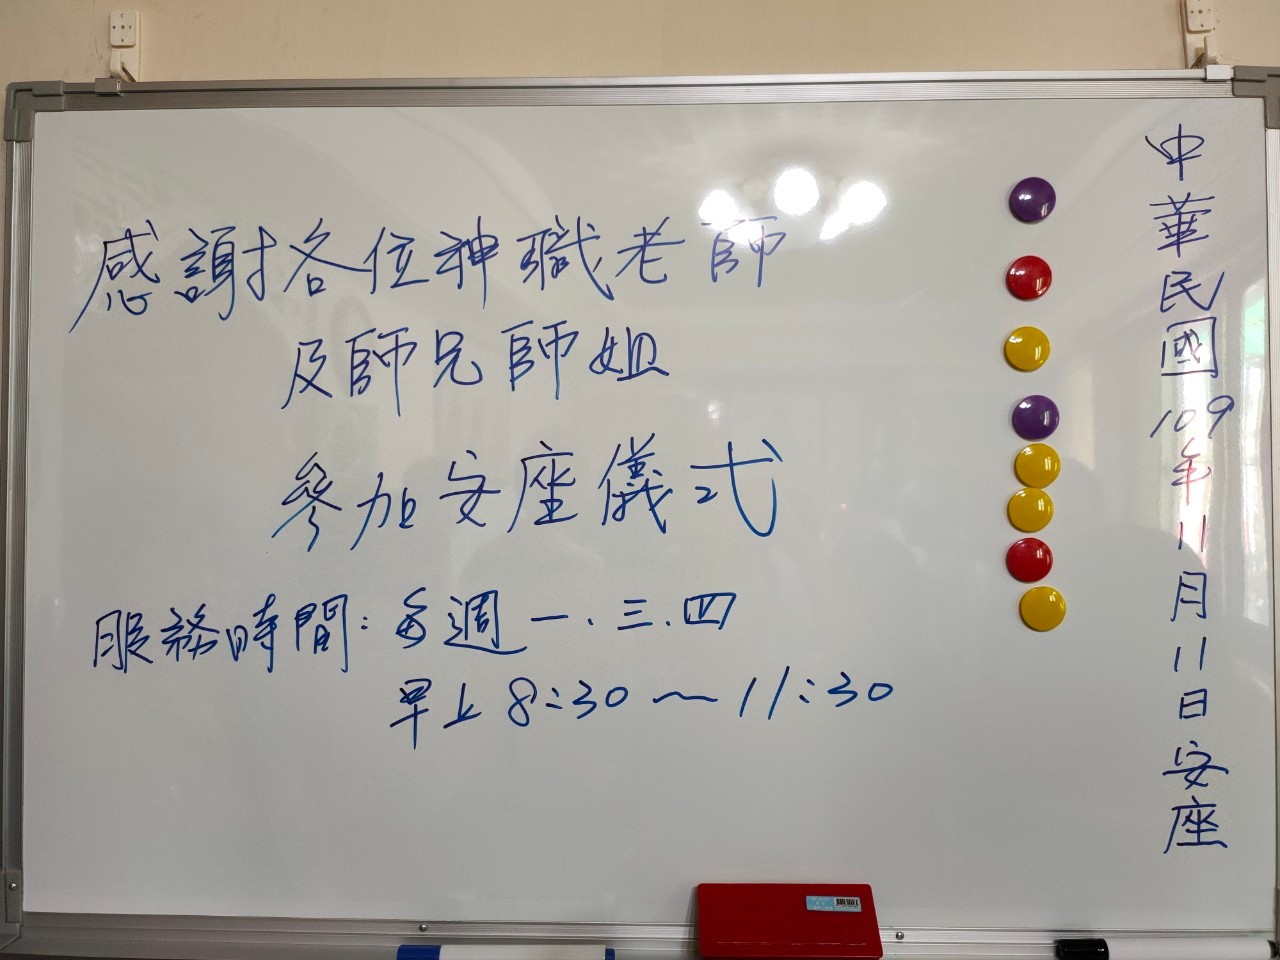 感謝各位神職老師
及師兄師姐
參加安座儀式
服務時間:每週一.三.四
早上8:30~11:30
中華民國109年11月11日安座